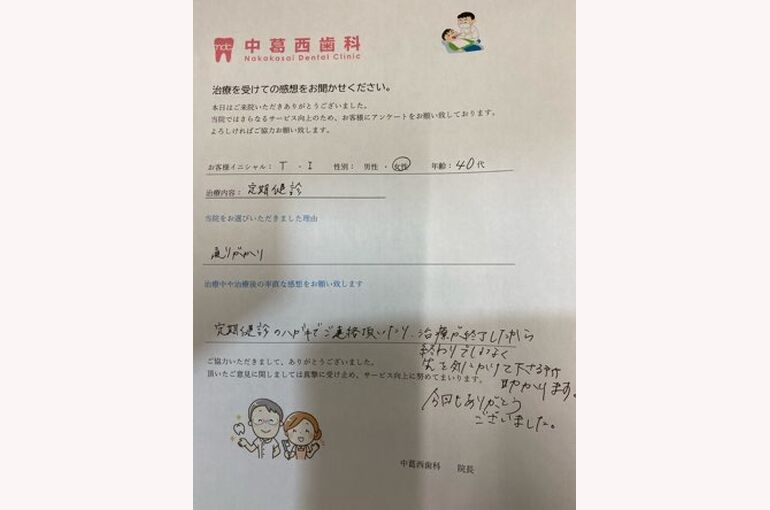 ndc 中葛西歯科
Nakakasai Dental Clinic
治療を受けての感想をお聞かせください。
本日はご来院いただきありがとうございました。
当院ではさらなるサービス向上のため、お客様にアンケートをお願い致しております。
よろしければご協力お願い致します。
お客様イニシャル： T ・ I 性別： 男性 ・ 女性 年齢：40代
治療内容： 定期健診
当院をお選びいただきました理由
通りがかり
治療中や治療後の率直な感想をお願い致します
定期健診のハガキでご連絡頂いたり、治療が終了したから
終わりでしかなく
先を気にかけて下さる
助かります。
今回もありがとう
ございました。
ご協力いただきまして、ありがとうございました。
頂いたご意見に関しましては真摯に受け止め、サービス向上に努めてまいります。
中葛西歯科 院長